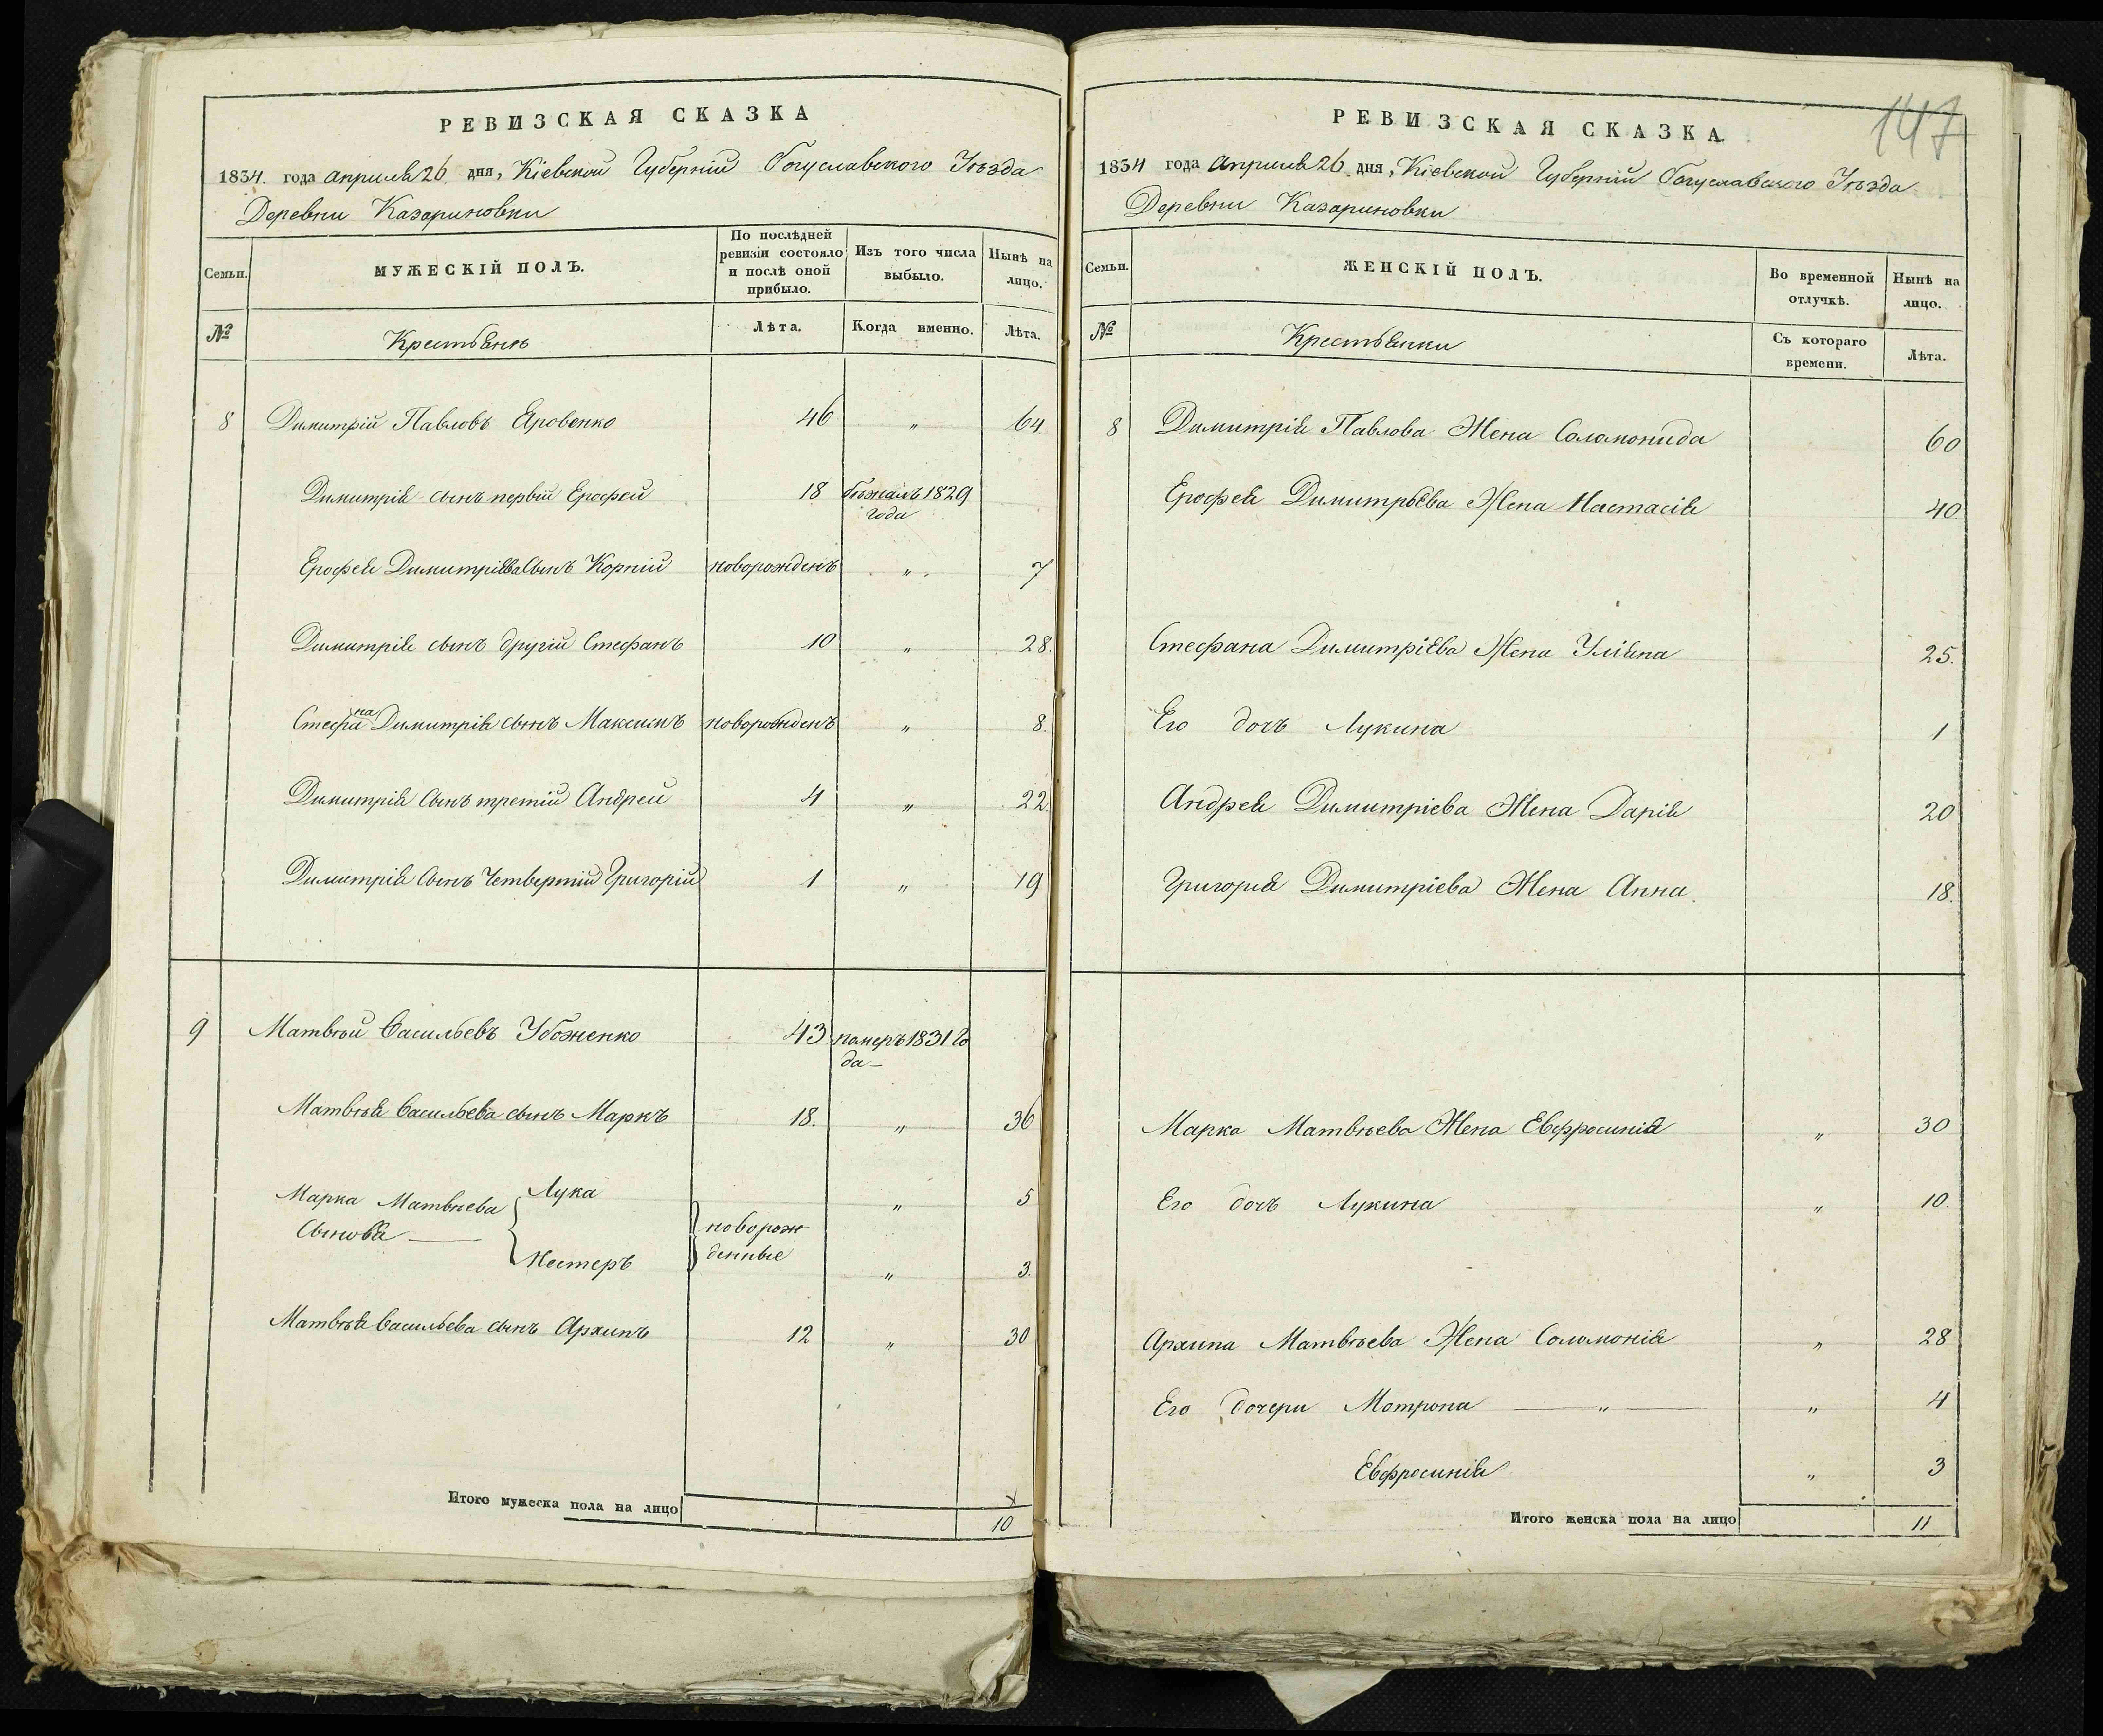 РЕВИЗСКАЯ СКАЗКА
1834 года апреля 26 дня, Кіевской Губерніи Богуславского Уѣзда
Деревни Казариновки
Семьи.
МУЖЕСКІЙ ПОЛЪ.
По послѣдней ревизіи состояло и послѣ оной прибыло.
Изъ того числа выбыло.
Нынѣ на лицо.
№
Крестьянѣ
Лѣта.
Когда именно.
Лѣта.
8 Димитрій Павловъ Яровенко 46 " 64
Димитрія сынъ первій Ерофей 18 бѣжалъ 1829 года
Ерофея Димитріява Сынъ Корній новорожденъ " 7
Димитрія сынъ другій Стефанъ 10 " 28.
Стефана Димитрія сынъ Максимъ новорожденъ " 8.
Димитрія Сынъ третій Андрей 4 " 22.
Димитрія Сынъ Четвертій Григорій 1 " 19
9 Матвѣй Васильевъ Убоженко 43 померъ 1831 го
да —
Матвѣя Васильева сынъ Маркъ 18. " 36
Марка Матвѣева Лука " 5
Сыновя — новорож
денные
Нестеръ " 3.
Матвѣя Васильева сынъ Архипъ 12 " 30
Итого мужеска пола на лицо
x
10
147
РЕВИЗСКАЯ СКАЗКА
1834 года Апреля 26 дня, Кіевской Губерніи Богуславского Уѣзда
Деревни Казариновки
Семьи.
ЖЕНСКІЙ ПОЛЪ.
Во временной отлучкѣ.
Нынѣ на лицо.
№
Крестьянки
Съ котораго времени.
Лѣта.
8 Димитрія Павлова Жена Соломонида 60
Ерофея Димитрьева Жена Настасія 40
Стефана Димитріева Жена Уліяна 25.
Его дочь Лукина 1
Андрея Димитріева Жена Дарія 20
Григорія Димитріева Жена Анна. 18.
Марка Матвѣева Жена Евфросинія " 30
Его дочь Лукина " 10.
Архипа Матвѣева Жена Соломонія " 28
Его дочери Мотрона — " — " 4
Евфросинія " 3
Итого женска пола на лицо 11